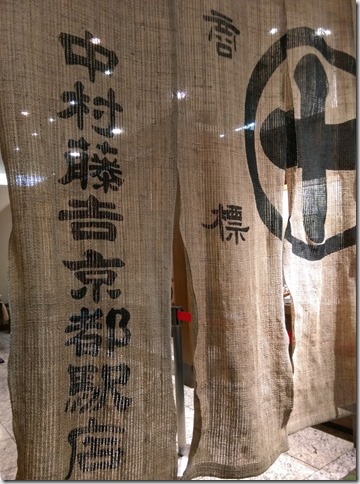 商標
中村藤吉京都駅店